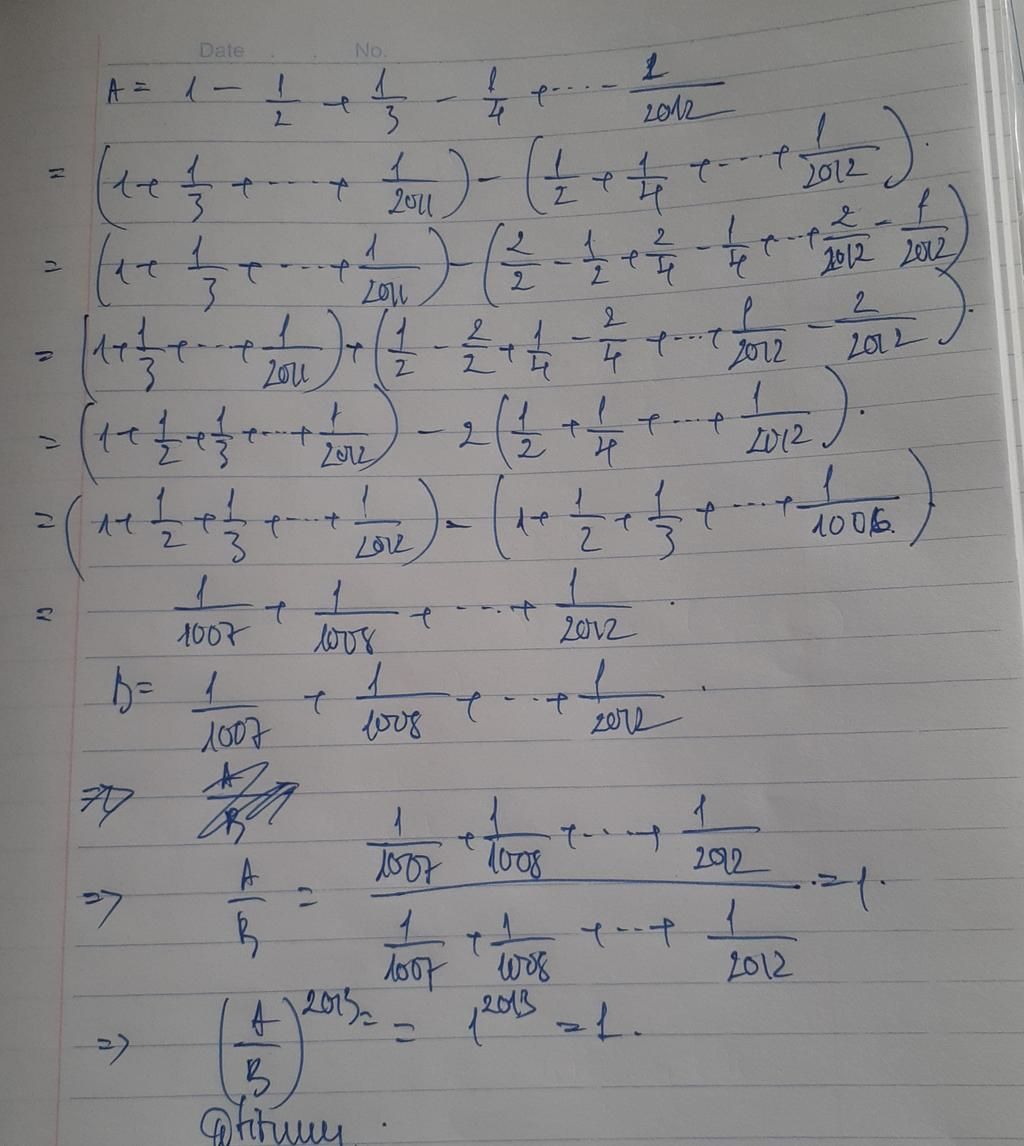 Date . . No.
A = 1 - 1/2 + 1/3 - 1/4 + .... - 1/2012
= (1 + 1/3 + ..... + 1/2011) - (1/2 + 1/4 + .... + 1/2012).
= (1 + 1/3 + .... + 1/2011) - (2/2 - 1/2 + 2/4 - 1/4 + ... + 2/2012 - 1/2012)
= (1 + 1/3 + .... + 1/2011) + (1/2 - 2/2 + 1/4 - 2/4 + .... + 1/2012 - 2/2012).
= (1 + 1/2 + 1/3 + .... + 1/2012) - 2(1/2 + 1/4 + .... + 1/2012).
= (1 + 1/2 + 1/3 + .... + 1/2012) - (1 + 1/2 + 1/3 + .... + 1/1006)
= 1/1007 + 1/1008 + .... + 1/2012 .
B = 1/1007 + 1/1008 + ... + 1/2012 .
=> A/B
=> A/B = (1/1007 + 1/1008 + .... + 1/2012)/(1/1007 + 1/1008 + .... + 1/2012) = 1.
=> (A/B)^2013 = = 1^2013 = 1.